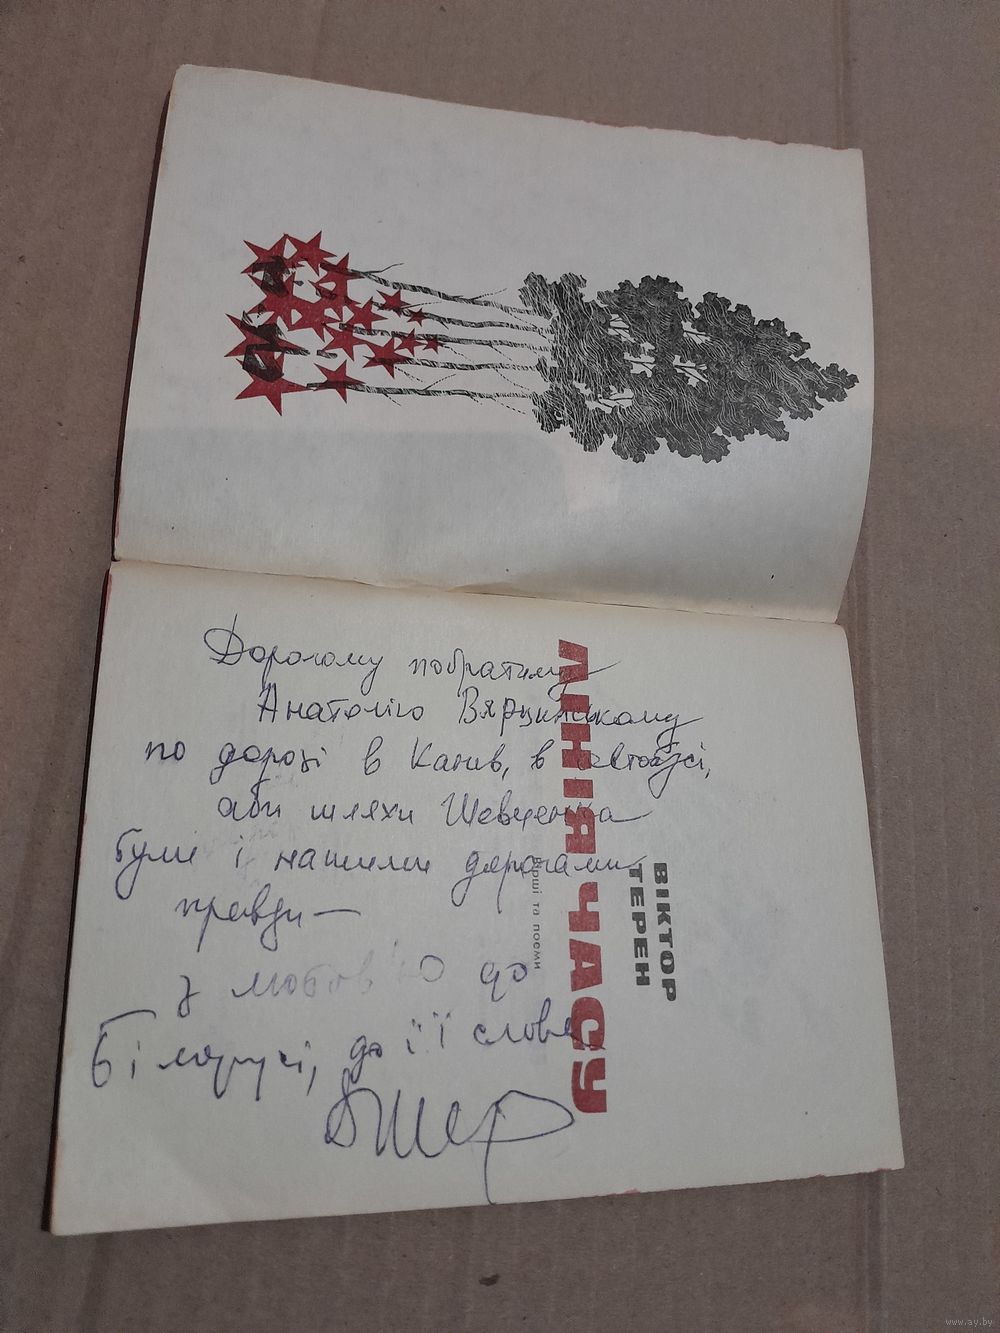 Дорогому побратиму
Анатолію Вярцинському
по дорозі в Канів, в автобусі,
аби шляхи Шевченка
були і нашими дорогами
правди —
з любов'ю до
Білорусі, до її слова
ВІКТОР
ТЕРЕН
ЛІНІЯ ЧАСУ
вірші та поеми
www.ay.by